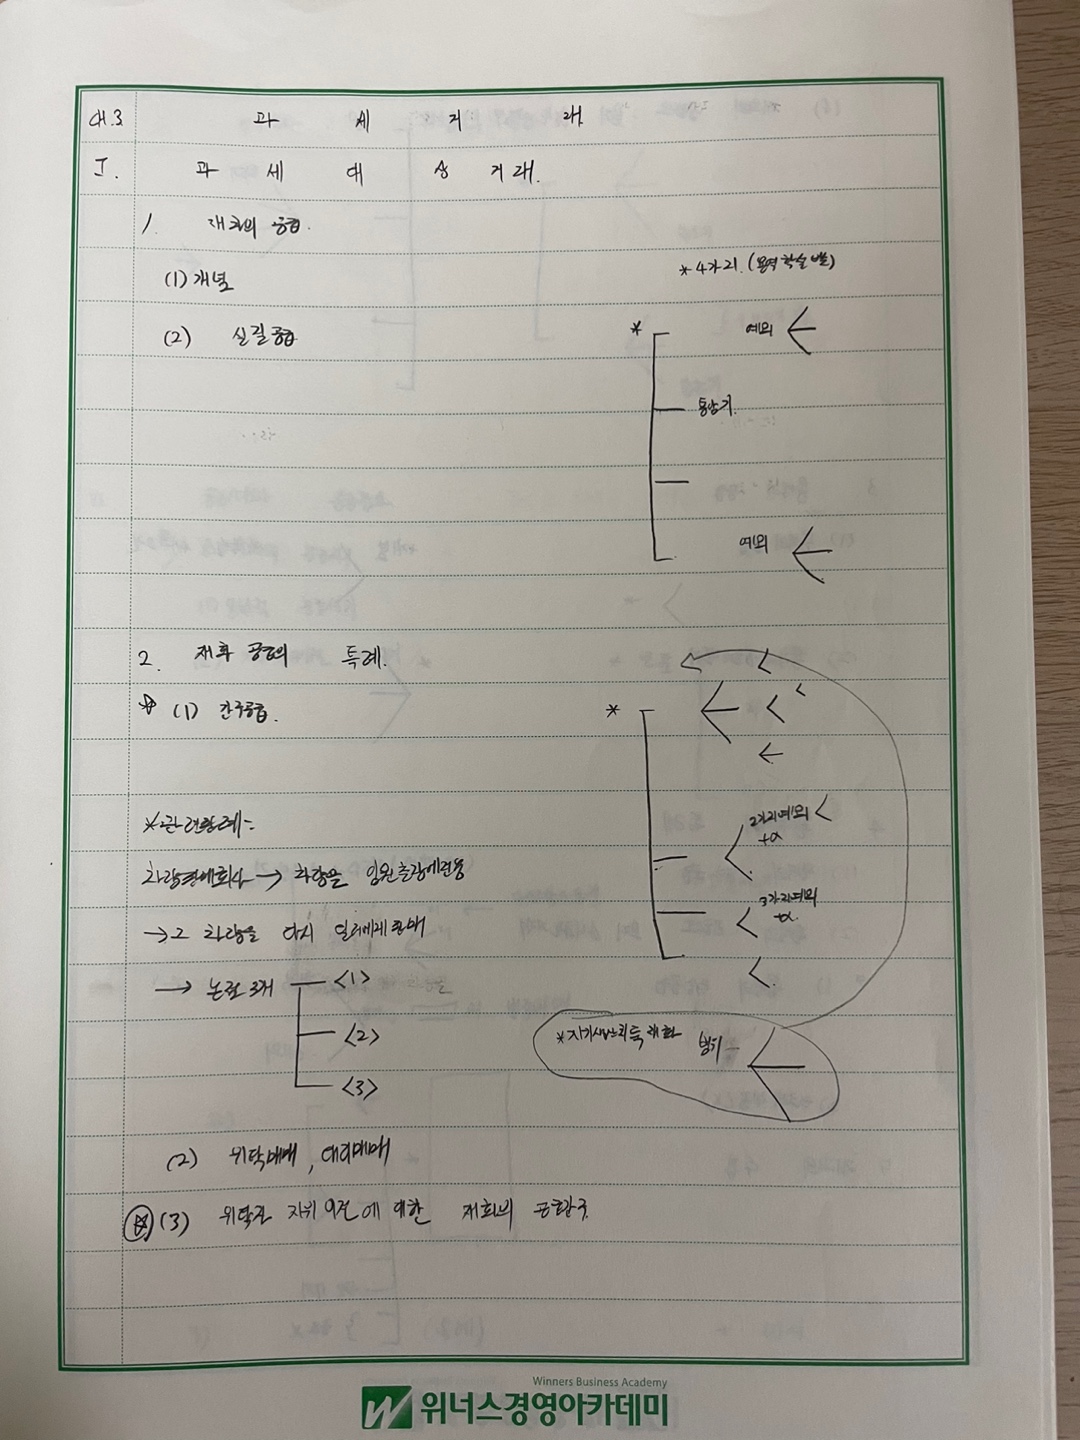 Ch.3 과 세 거 래.
I. 과 세 대 상 거 래.
1. 재화의 공급.
(1) 개념
* 4가지.
(2) 실질공급
*
예외
예외
2. 재화 공급의 특례.
(1) 간주공급.
*
*관련판례:
2가지예외
+α
차량판매회사 → 차량을 임원출장에전용
3가지예외
+α.
→ 그 차량을 다시 딜러에게판매
→ 논점 3개 <1>
<2>
<3>
*자가생산취득재화 범위
(2) 위탁매매, 대리매매
(3) 위탁자 지위 이전에 대한 재화의 공급간주
Winners Business Academy
위너스경영아카데미